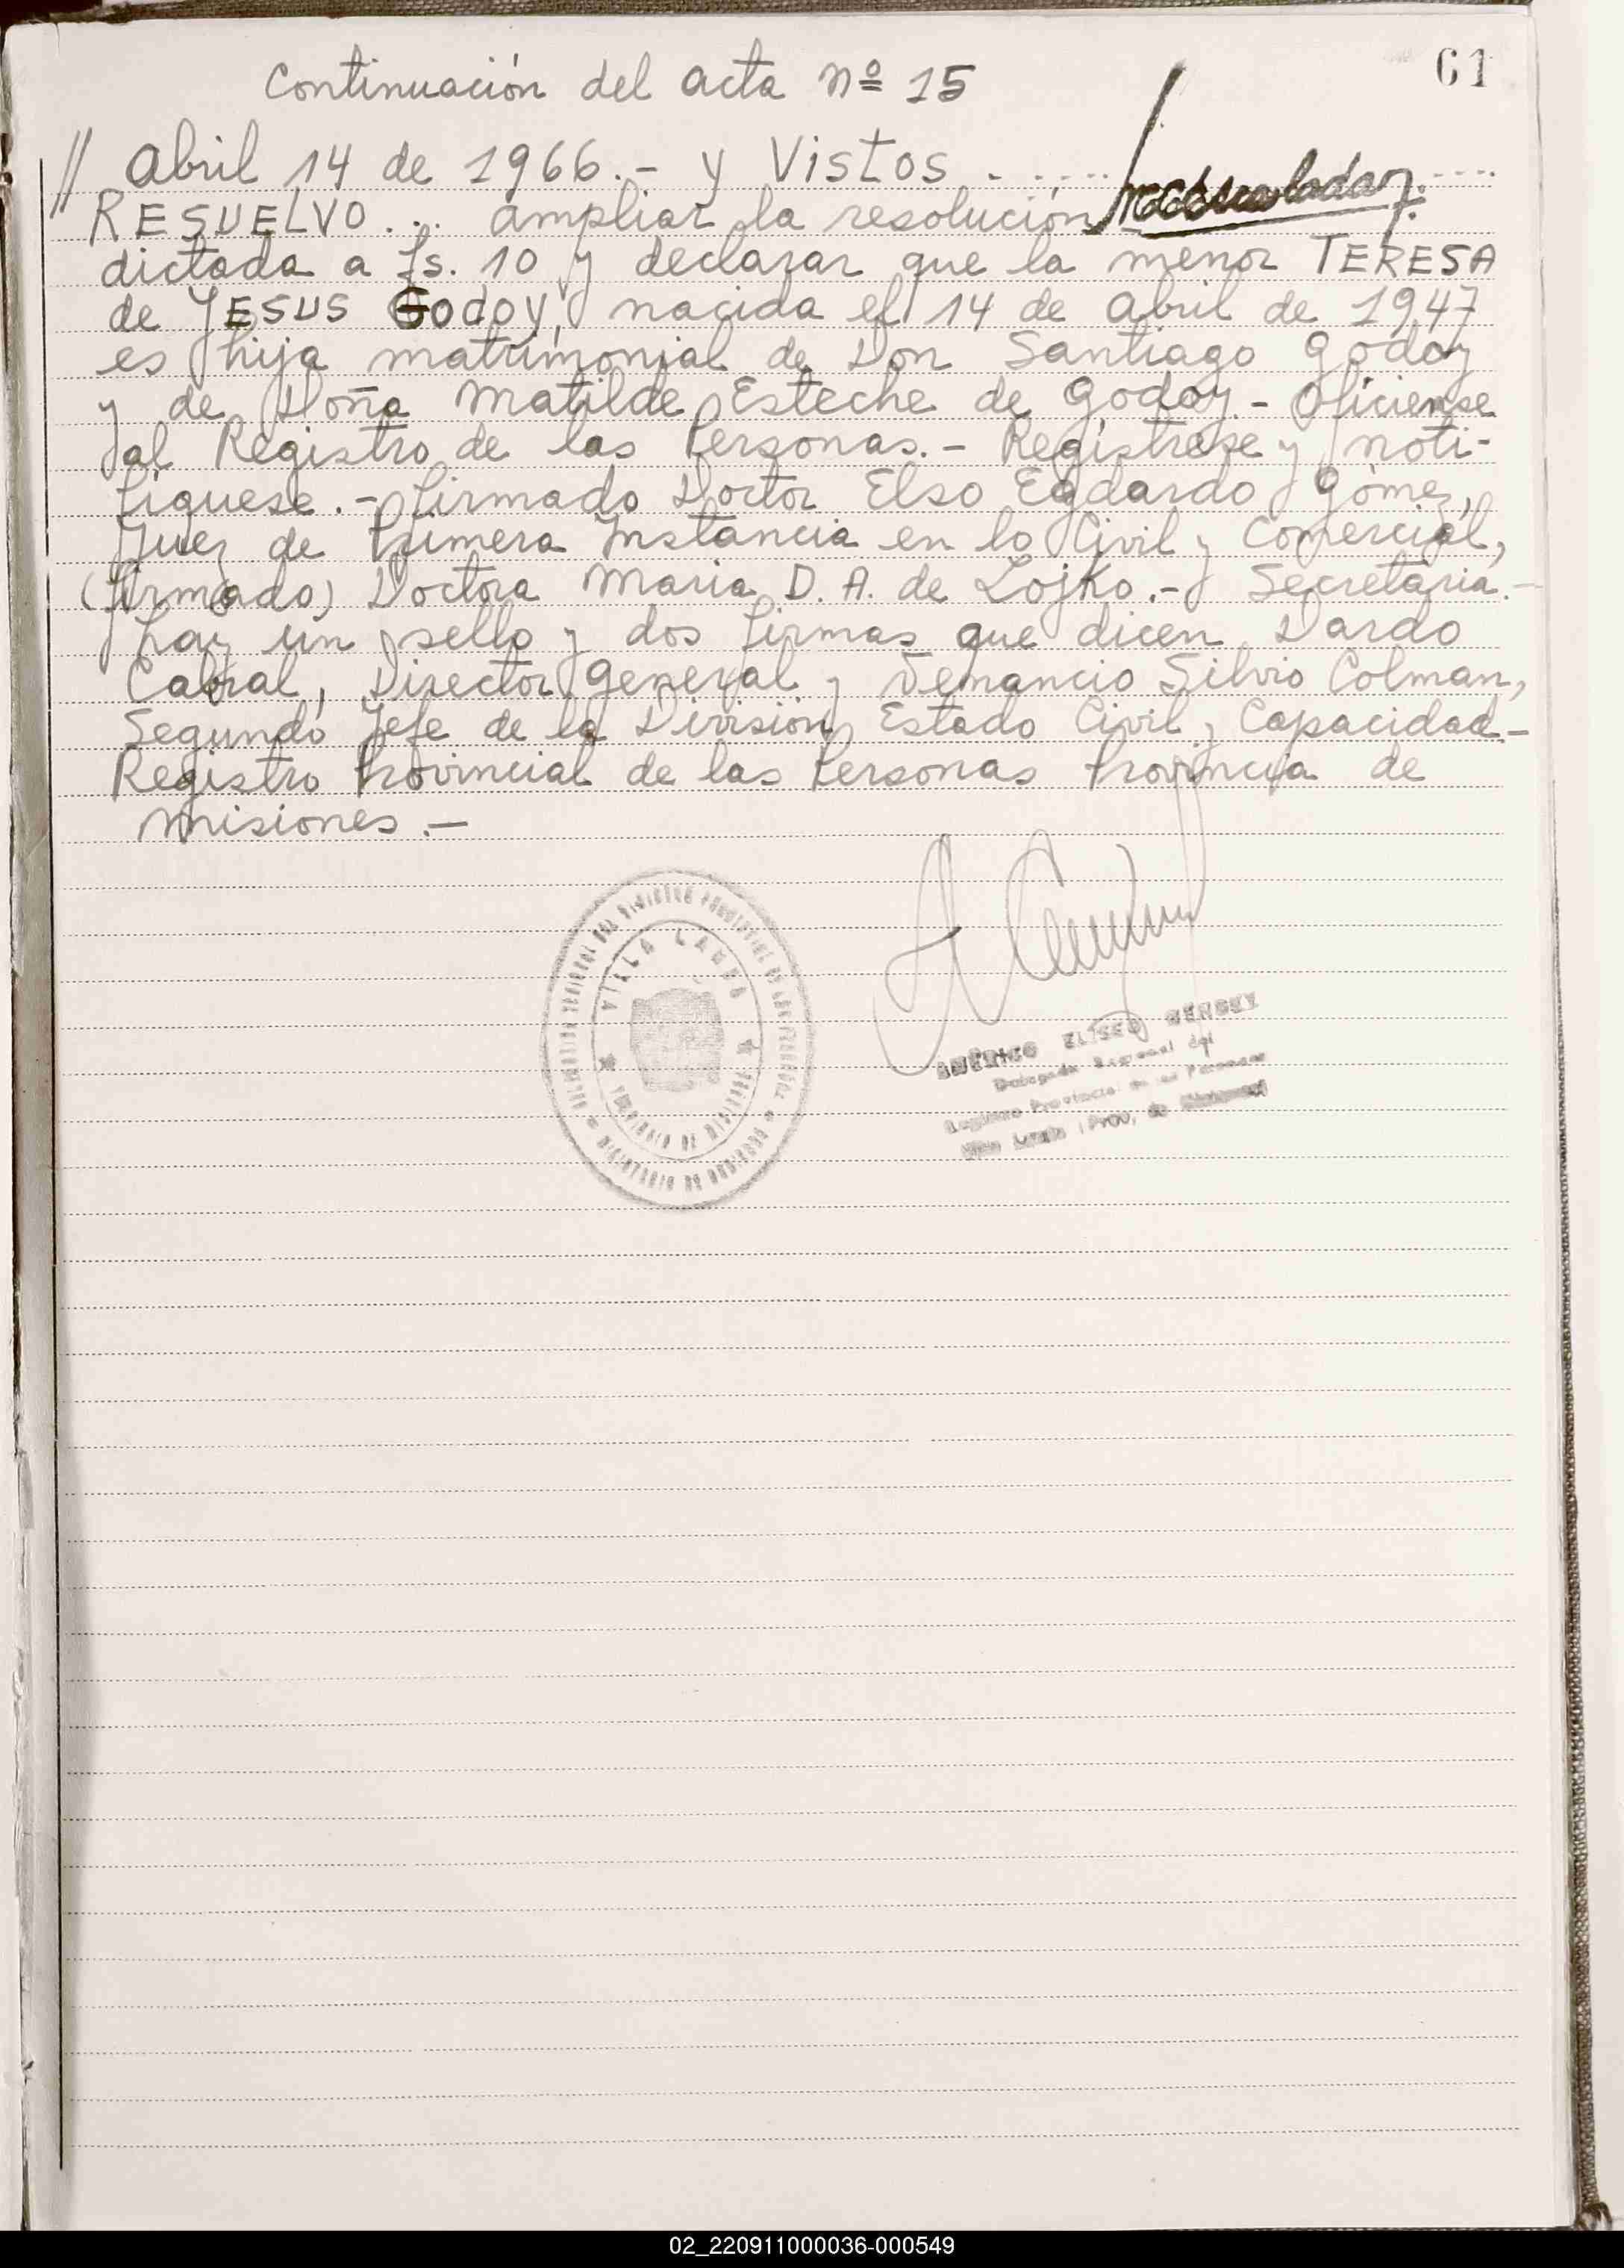 61
Continuación del acta nº 15
// Abril 14 de 1966.- y Vistos . . . . . .
RESUELVO . . . ampliar la resolución
dictada a fs. 10 y declarar que la menor TERESA
de JESUS GODOY, nacida el 14 de Abril de 1947
es hija matrimonial de Don Santiago Godoy
y de Doña Matilde Esteche de Godoy.- Ofíciense
al Registro de las Personas.- Regístrese y noti-
fíquese.- firmado Doctor Elso Egdardo Gómez,
Juez de Primera Instancia en lo Civil y Comercial,
(firmado) Doctora Maria D. A. de Lojko.- Secretaria.-
hay un sello y dos firmas que dicen Dardo
Cabral, Director General y Venancio Silvio Colman,
Segundo Jefe de la División Estado Civil y Capacidad-
Registro Provincial de las Personas Provincia de
Misiones.-
VILLA LANUS
AMÉRICO ELISEO
Delegado Regional del
Registro Provincial de las Personas
Villa Lanús (Prov. de Misiones)
02_220911000036-000549